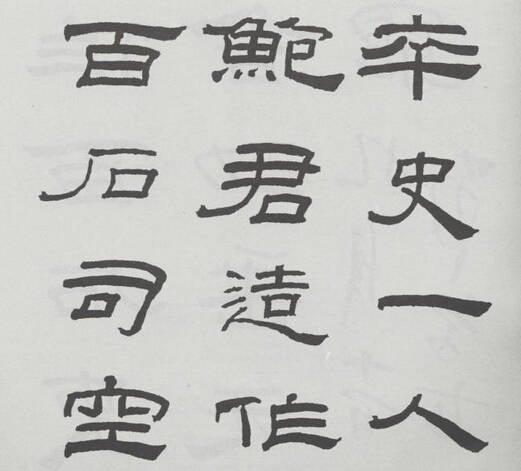 卒史一人
鮑君造作
百石司空